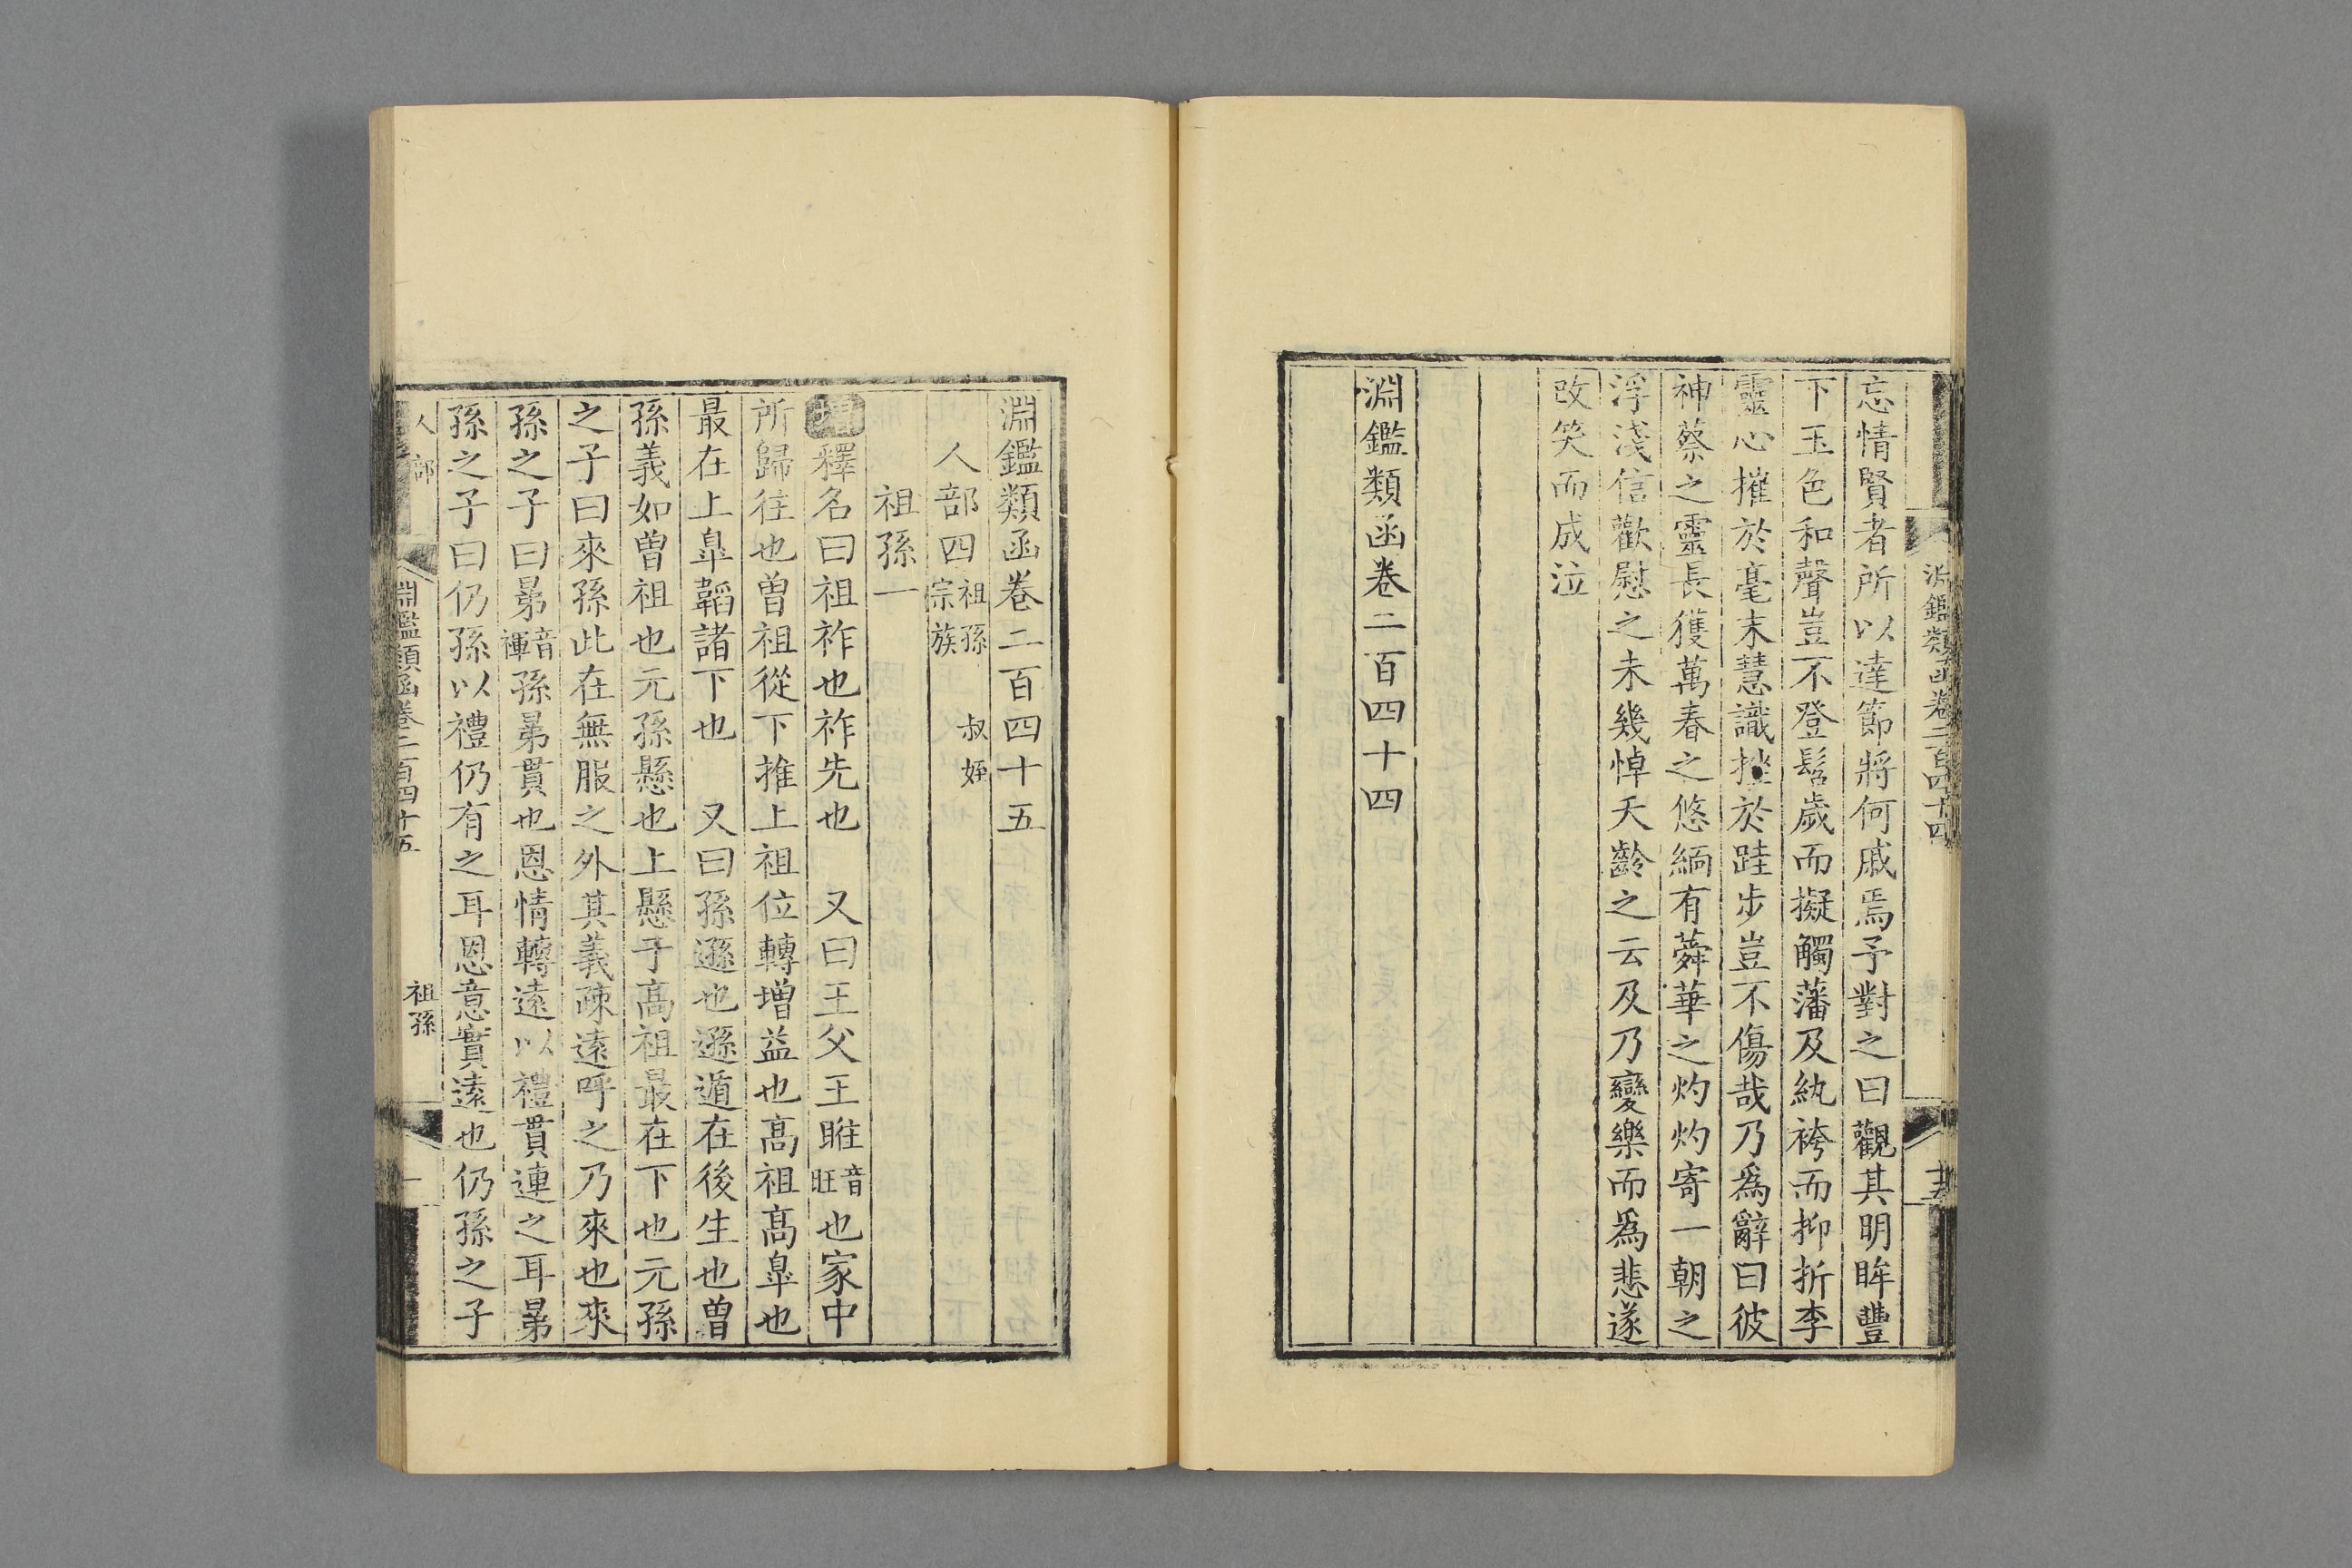 忘情賢者所以達節將何戚焉予對之曰觀其明眸豐
下玉色和聲豈不登髫歲而擬觸藩及紈袴而抑折李
靈心摧於毫末慧識挫於跬步豈不傷哉乃爲辭曰彼
神蔡之靈長獲萬春之悠緬有蕣華之灼灼寄一朝之
浮淺信歡慰之未幾悼夭齡之云及乃變樂而爲悲遂
改笑而成泣
淵鑑類函卷二百四十四
淵鑑類函卷二百四十四
淵鑑類函卷二百四十五
人部四 祖孫 叔姪 宗族
祖孫一
增釋名曰祖祚也祚先也 又曰王父王暀音旺也家中
所歸往也曾祖從下推上祖位轉增益也高祖高臯也
最在上臯韜諸下也 又曰孫遜也遜遁在後生也曾
孫義如曾祖也元孫懸也上懸于高祖最在下也元孫
之子曰來孫此在無服之外其義疎遠呼之乃來也來
孫之子曰晜音褌孫晜貫也恩情轉遠以禮貫連之耳晜
孫之子曰仍孫以禮仍有之耳恩意實遠也仍孫之子
人部 淵鑑類函卷二百四十五 祖孫 一